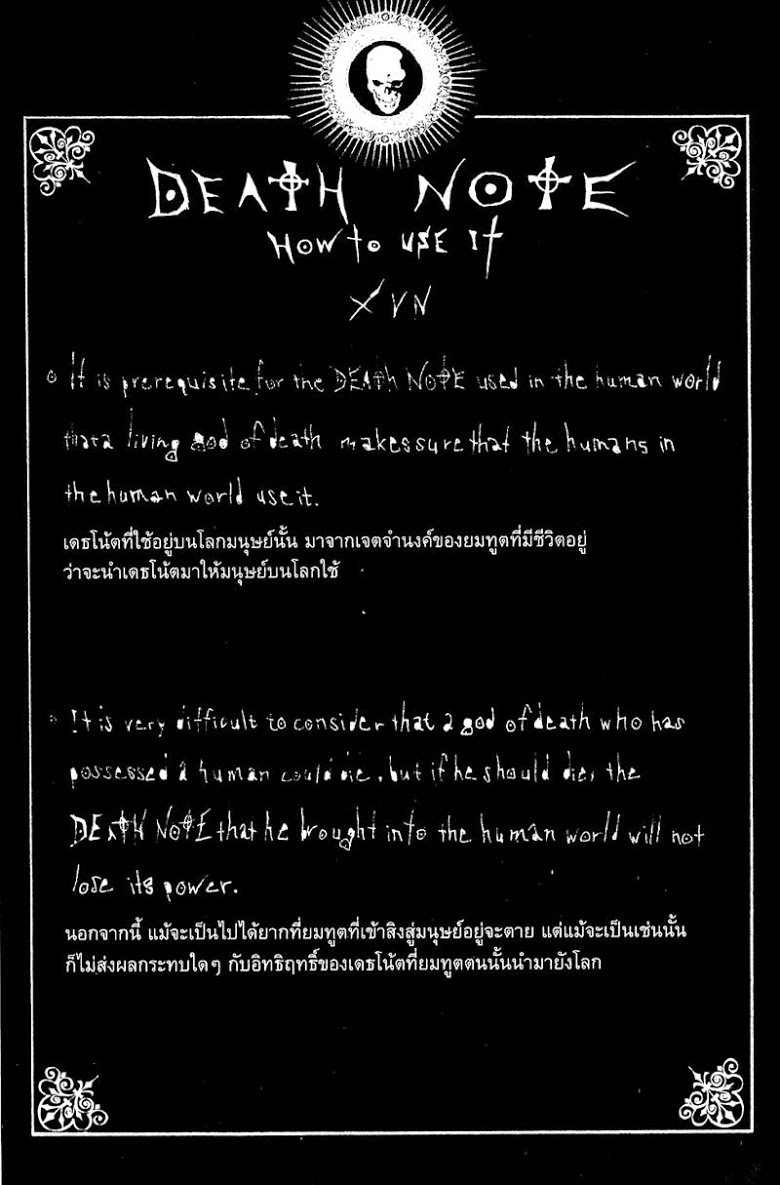 DEATH NOTE
HOW to USE It
XVN
It is prerequisite for the DEATH NOTE used in the human world
that a living god of death makes sure that the humans in
the human world use it.
เดธโน้ตที่ใช้อยู่บนโลกมนุษย์นั้น มาจากเจตจำนงค์ของยมทูตที่มีชีวิตอยู่
ว่าจะนำเดธโน้ตมาให้มนุษย์บนโลกใช้
It is very difficult to consider that a god of death who has
possessed a human could die, but if he should die, the
DEATH NOTE that he brought into the human world will not
lose its power.
นอกจากนี้ แม้จะเป็นไปได้ยากที่ยมทูตที่เข้าสิงสู่มนุษย์อยู่จะตาย แต่แม้จะเป็นเช่นนั้น
ก็ไม่ส่งผลกระทบใดๆ กับอิทธิฤทธิ์ของเดธโน้ตที่ยมทูตตนนั้นนำมายังโลก